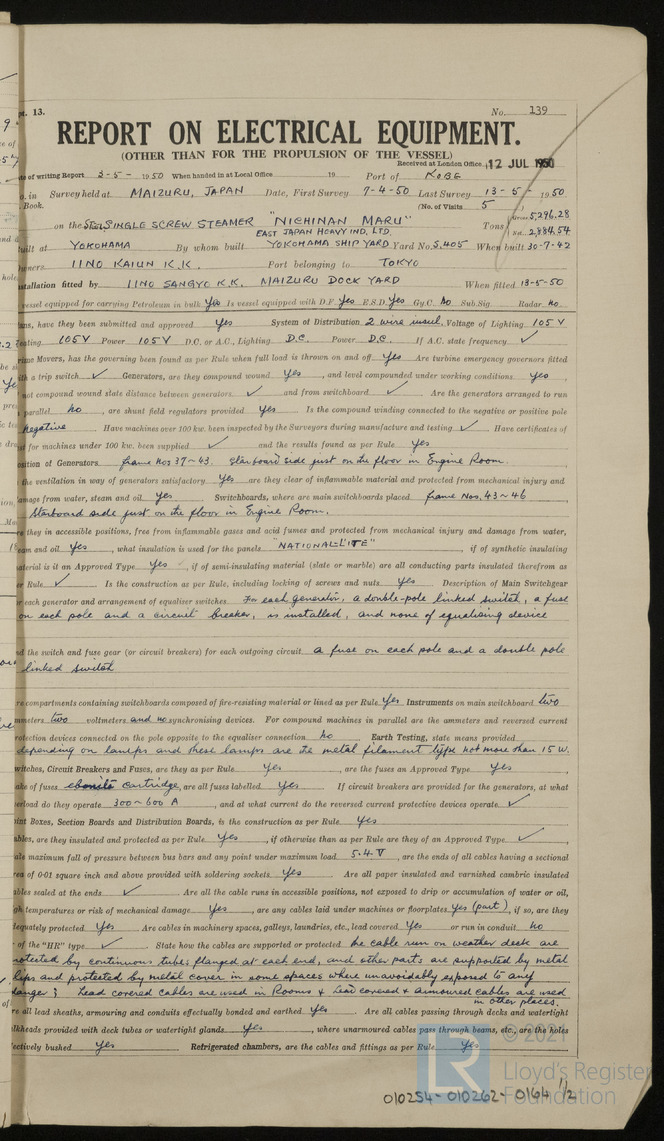 pt. 13. No. 139
REPORT ON ELECTRICAL EQUIPMENT.
(OTHER THAN FOR THE PROPULSION OF THE VESSEL)
Received at London Office 12 JUL 1950
te of writing Report 3-5- 1950 When handed in at Local Office 19 Port of KOBE
o. in Survey held at MAIZURU, JAPAN Date, First Survey 7-4-50 Last Survey 13-5-1950
Book. (No. of Visits 5
on the SINGLE SCREW STEAMER "NICHINAN MARU" Tons Gross 5296.28
EAST JAPAN HEAVY IND, LTD. Net 2,884.54
uilt at YOKOHAMA By whom built YOKOHAMA SHIP YARD Yard No. S.405 When built 30-7-42
wners. IINO KAIUN K.K. Port belonging to TOKYO
nstallation fitted by IINO SANGYO K.K. MAIZURU DOCK YARD When fitted 13-5-50
vessel equipped for carrying Petroleum in bulk Yes Is vessel equipped with D.F. Yes E.S.D. Yes Gy.C. No Sub.Sig. Radar No
ans, have they been submitted and approved Yes System of Distribution 2 wire insul. Voltage of Lighting 105 V
eating 105V Power 105 V D.C. or A.C., Lighting D.C. Power D.C. If A.C. state frequency ✓
rime Movers, has the governing been found as per Rule when full load is thrown on and off Yes Are turbine emergency governors fitted
ith a trip switch ✓ Generators, are they compound wound Yes, and level compounded under working conditions Yes
not compound wound state distance between generators ✓ and from switchboard ✓ Are the generators arranged to run
parallel No, are shunt field regulators provided Yes Is the compound winding connected to the negative or positive pole
negative Have machines over 100 kw. been inspected by the Surveyors during manufacture and testing ✓ Have certificates of
st for machines under 100 kw. been supplied ✓ and the results found as per Rule Yes
osition of Generators frame Nos 37~43. Starboard side just on the floor in Engine Room.
the ventilation in way of generators satisfactory Yes are they clear of inflammable material and protected from mechanical injury and
amage from water, steam and oil Yes Switchboards, where are main switchboards placed frame Nos. 43~46
Starboard side just on the floor in Engine Room.
re they in accessible positions, free from inflammable gases and acid fumes and protected from mechanical injury and damage from water,
eam and oil Yes, what insulation is used for the panels "NATIONALLITE", if of synthetic insulating
aterial is it an Approved Type Yes, if of semi-insulating material (slate or marble) are all conducting parts insulated therefrom as
er Rule ✓ Is the construction as per Rule, including locking of screws and nuts Yes Description of Main Switchgear
r each generator and arrangement of equaliser switches For each generator, a double-pole linked switch, a fuse
on each pole and a circuit breaker, is installed, and none of equalising device
nd the switch and fuse gear (or circuit breakers) for each outgoing circuit a fuse on each pole and a double pole
linked switch
re compartments containing switchboards composed of fire-resisting material or lined as per Rule Yes Instruments on main switchboard two
mmeters two voltmeters and no synchronising devices. For compound machines in parallel are the ammeters and reversed current
rotection devices connected on the pole opposite to the equaliser connection No Earth Testing, state means provided
depending on lamps and these lamps are the metal filament type not more than 15 W.
witches, Circuit Breakers and Fuses, are they as per Rule Yes, are the fuses an Approved Type Yes,
ake of fuses cartridge, are all fuses labelled Yes If circuit breakers are provided for the generators, at what
erload do they operate 300~600 A, and at what current do the reversed current protective devices operate ✓
int Boxes, Section Boards and Distribution Boards, is the construction as per Rule Yes
ables, are they insulated and protected as per Rule Yes, if otherwise than as per Rule are they of an Approved Type ✓,
ate maximum fall of pressure between bus bars and any point under maximum load 5.4 V, are the ends of all cables having a sectional
rea of 0·01 square inch and above provided with soldering sockets Yes Are all paper insulated and varnished cambric insulated
ables sealed at the ends ✓ Are all the cable runs in accessible positions, not exposed to drip or accumulation of water or oil,
gh temperatures or risk of mechanical damage Yes, are any cables laid under machines or floorplates Yes (part), if so, are they
dequately protected Yes Are cables in machinery spaces, galleys, laundries, etc., lead covered Yes or run in conduit No
of the "HR" type ✓ State how the cables are supported or protected the cable run on weather deck are
rotected by continuous tubes flanged at each end, and other parts are supported by metal
clips and protected by metal cover in some spaces where unavoidably exposed to any
danger; Lead covered cables are used in Rooms & Lead covered & armoured cables are used
in other places.
re all lead sheaths, armouring and conduits effectually bonded and earthed Yes Are all cables passing through decks and watertight
lkheads provided with deck tubes or watertight glands Yes, where unarmoured cables pass through beams, etc., are the holes
ectively bushed Yes Refrigerated chambers, are the cables and fittings as per Rule Yes
© 2021
LR Lloyd's Register
Foundation
010254-010262-0164 1/2